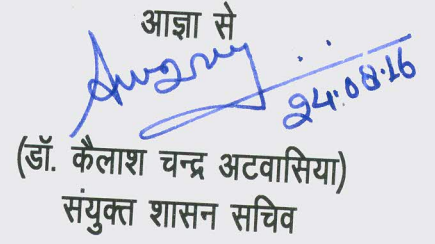 आज्ञा से
24.08.16
(डॉ. कैलाश चन्द्र अटवासिया)
संयुक्त शासन सचिव